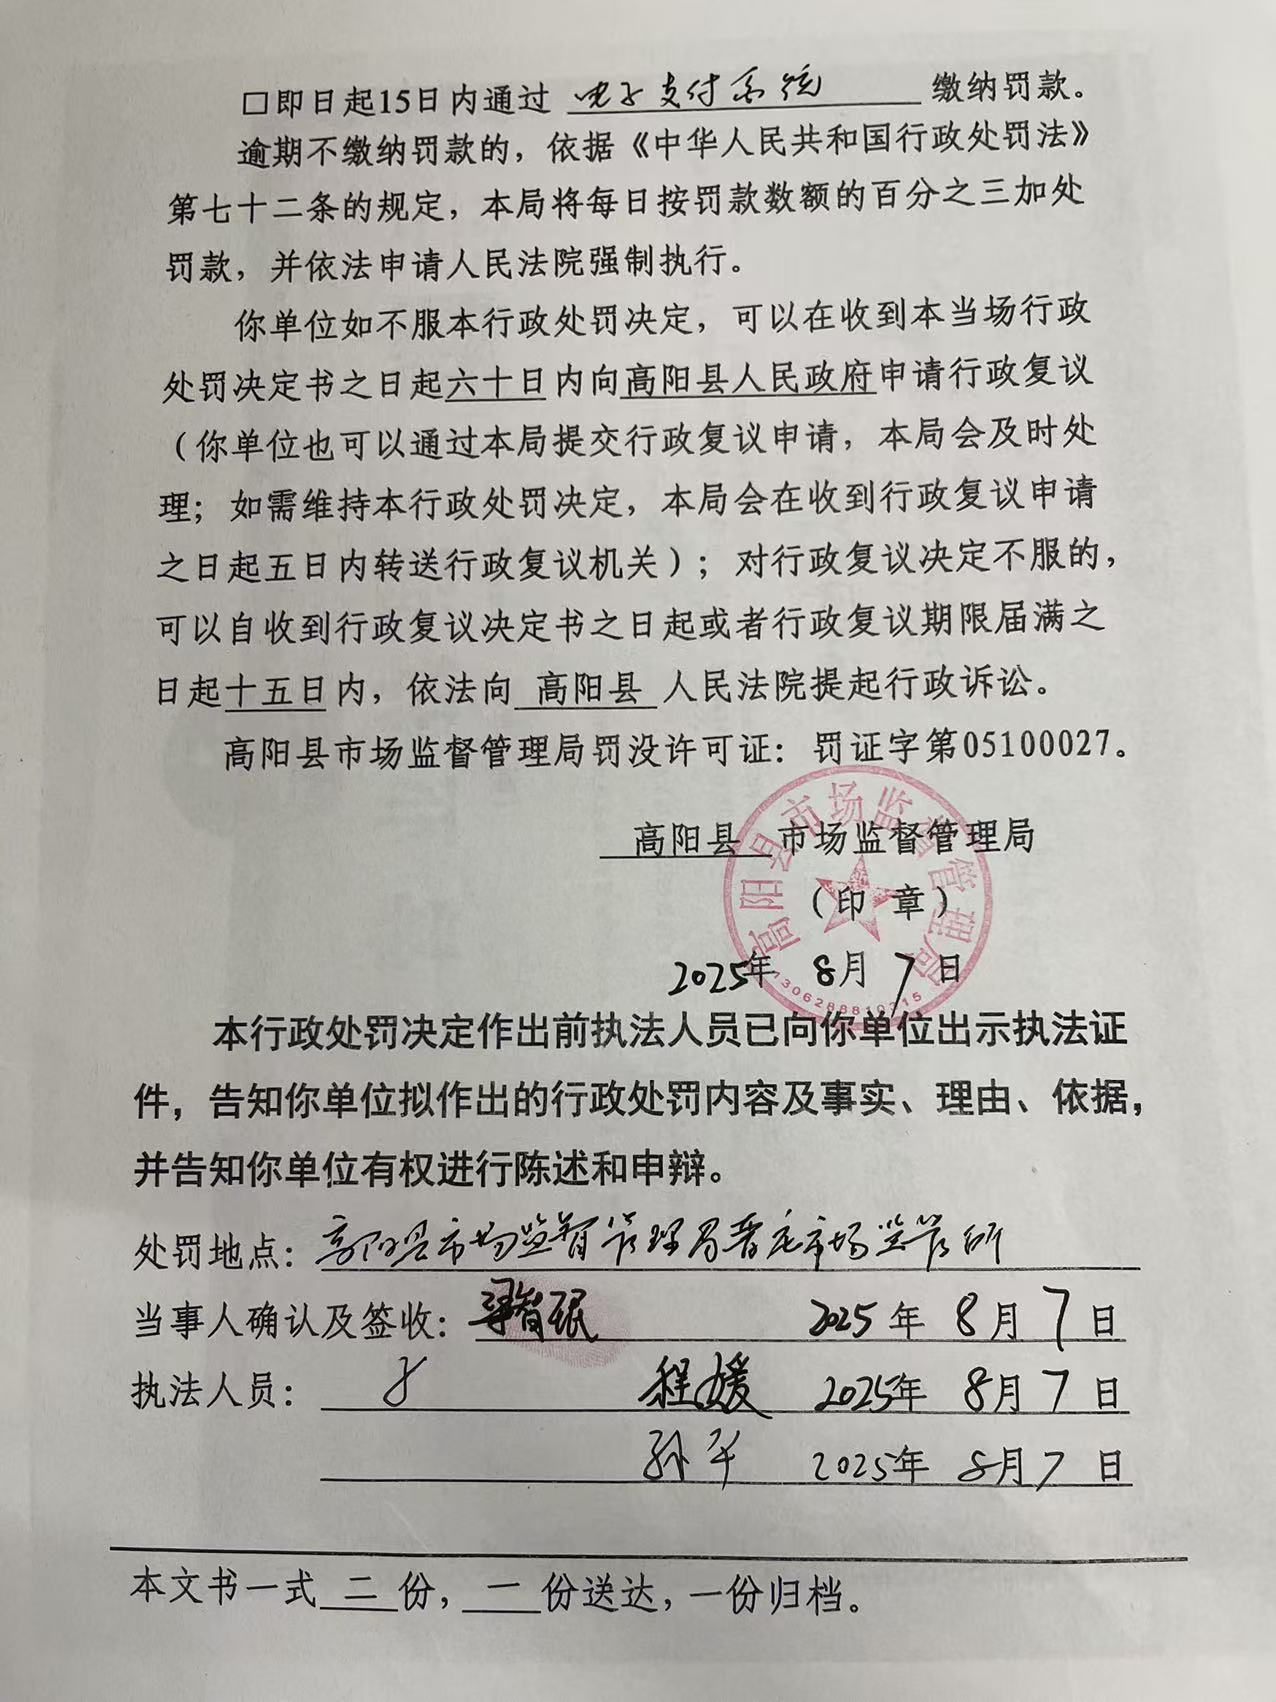 □即日起15日内通过 电子支付系统 缴纳罚款。
逾期不缴纳罚款的，依据《中华人民共和国行政处罚法》
第七十二条的规定，本局将每日按罚款数额的百分之三加处
罚款，并依法申请人民法院强制执行。
你单位如不服本行政处罚决定，可以在收到本当场行政
处罚决定书之日起六十日内向高阳县人民政府申请行政复议
（你单位也可以通过本局提交行政复议申请，本局会及时处
理；如需维持本行政处罚决定，本局会在收到行政复议申请
之日起五日内转送行政复议机关）；对行政复议决定不服的，
可以自收到行政复议决定书之日起或者行政复议期限届满之
日起十五日内，依法向 高阳县 人民法院提起行政诉讼。
高阳县市场监督管理局罚没许可证：罚证字第05100027。
高阳县 市场监督管理局
（印 章）
2025年 8月 7日
高阳县市场监督管理局
本行政处罚决定作出前执法人员已向你单位出示执法证
件，告知你单位拟作出的行政处罚内容及事实、理由、依据，
并告知你单位有权进行陈述和申辩。
处罚地点：高阳县市场监督管理局晋庄市场监管所
当事人确认及签收： 2025年 8月 7日
执法人员： 程媛 2025年 8月 7日
孙 2025年 8月 7日
本文书一式 二 份， 一 份送达，一份归档。